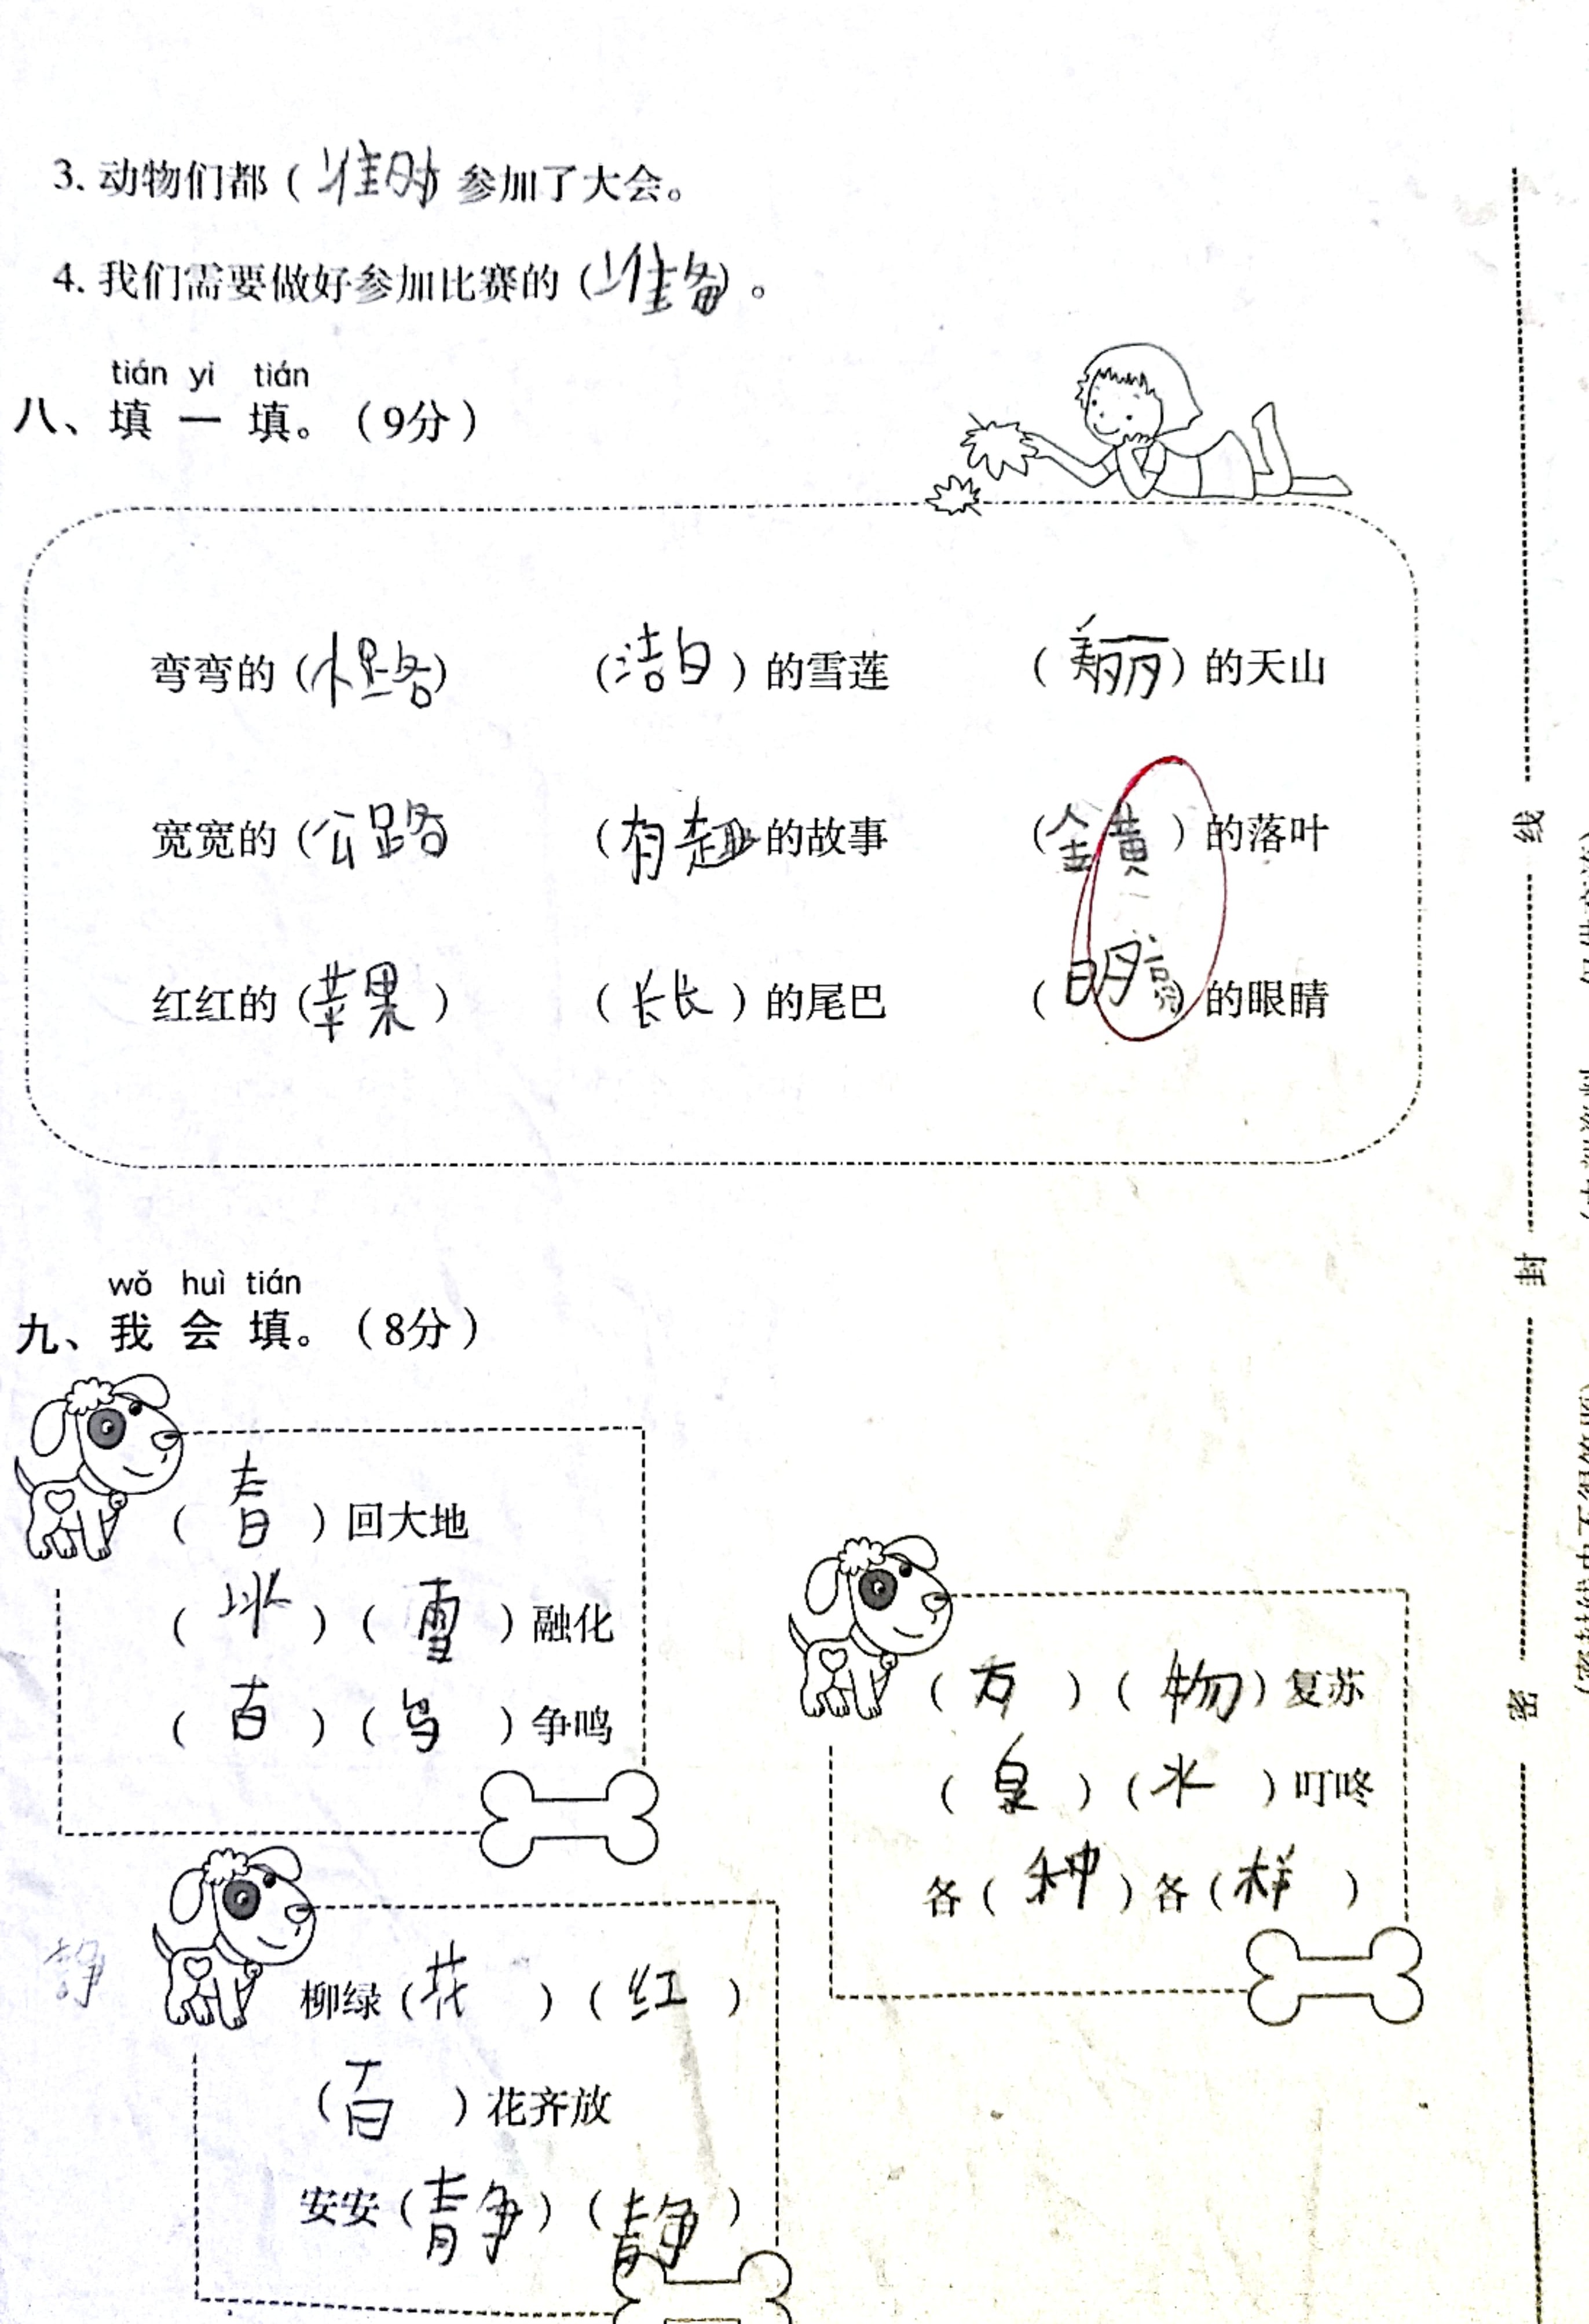 3. 动物们都（准时）参加了大会。
4. 我们需要做好参加比赛的（准备）。
tián yi tián
八、填一填。（9分）
弯弯的（小路） （洁白）的雪莲 （美丽）的天山
宽宽的（公路 （有趣 的故事 （金黄）的落叶
红红的（苹果） （长长）的尾巴 （明亮）的眼睛
wǒ huì tián
九、我会填。（8分）
（春）回大地
（冰）（雪）融化
（百）（鸟）争鸣
（万）（物）复苏
（泉）（水）叮咚
各（种）各（样）
静
柳绿（花）（红）
（百）花齐放
安安（静）（静）
线
封
密